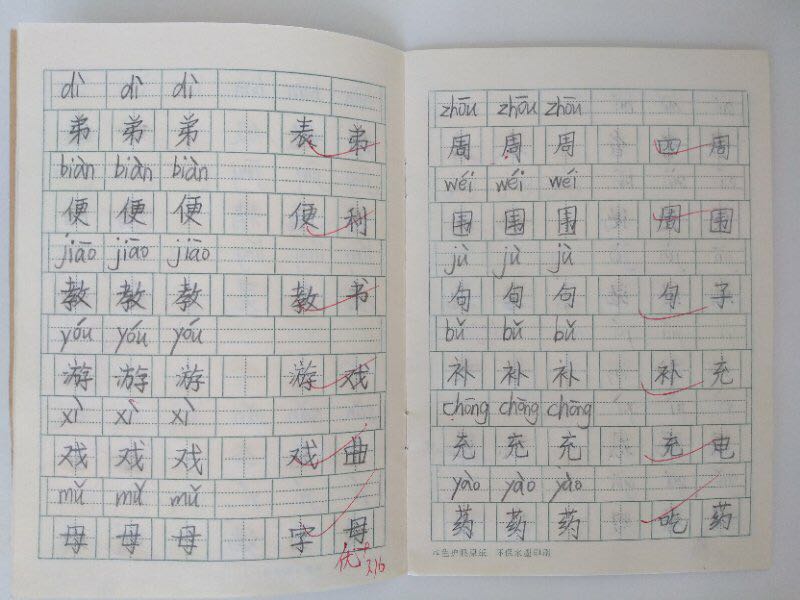 dì dì dì
弟 弟 弟 表 弟
biàn biàn biàn
便 便 便 便 利
jiāo jiāo jiāo
教 教 教 教 书
yóu yóu yóu
游 游 游 游 戏
xì xì xì
戏 戏 戏 戏 曲
mǔ mǔ mǔ
母 母 母 字 母
优+
3.16
zhōu zhōu zhōu
周 周 周 四 周
wéi wéi wéi
围 围 围 周 围
jù jù jù
句 句 句 句 子
bǔ bǔ bǔ
补 补 补 补 充
chōng chōng chōng
充 充 充 充 电
yào yào yào
药 药 药 吃 药
本色护眼原纸 不供水墨印刷